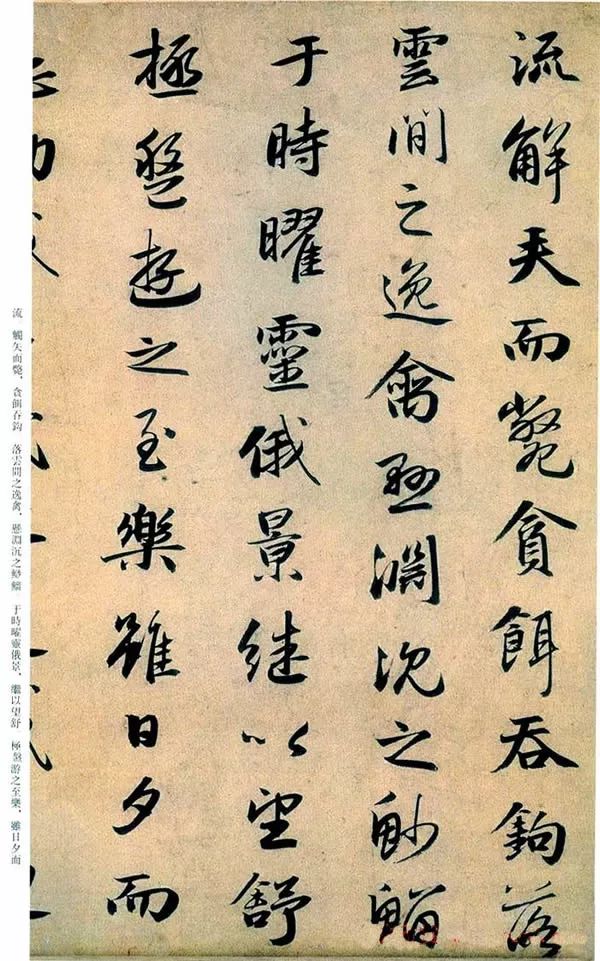 流觸矢而斃貪餌吞鉤落
雲間之逸禽懸淵沉之魦鰡
于時曜靈俄景继以望舒
極盤遊之至樂雖日夕而
流 觸矢而斃，貪餌吞鈎 落雲間之逸禽，懸淵沉之魦鰡 于時曜靈俄景，繼以望舒 極盤游之至樂，雖日夕而